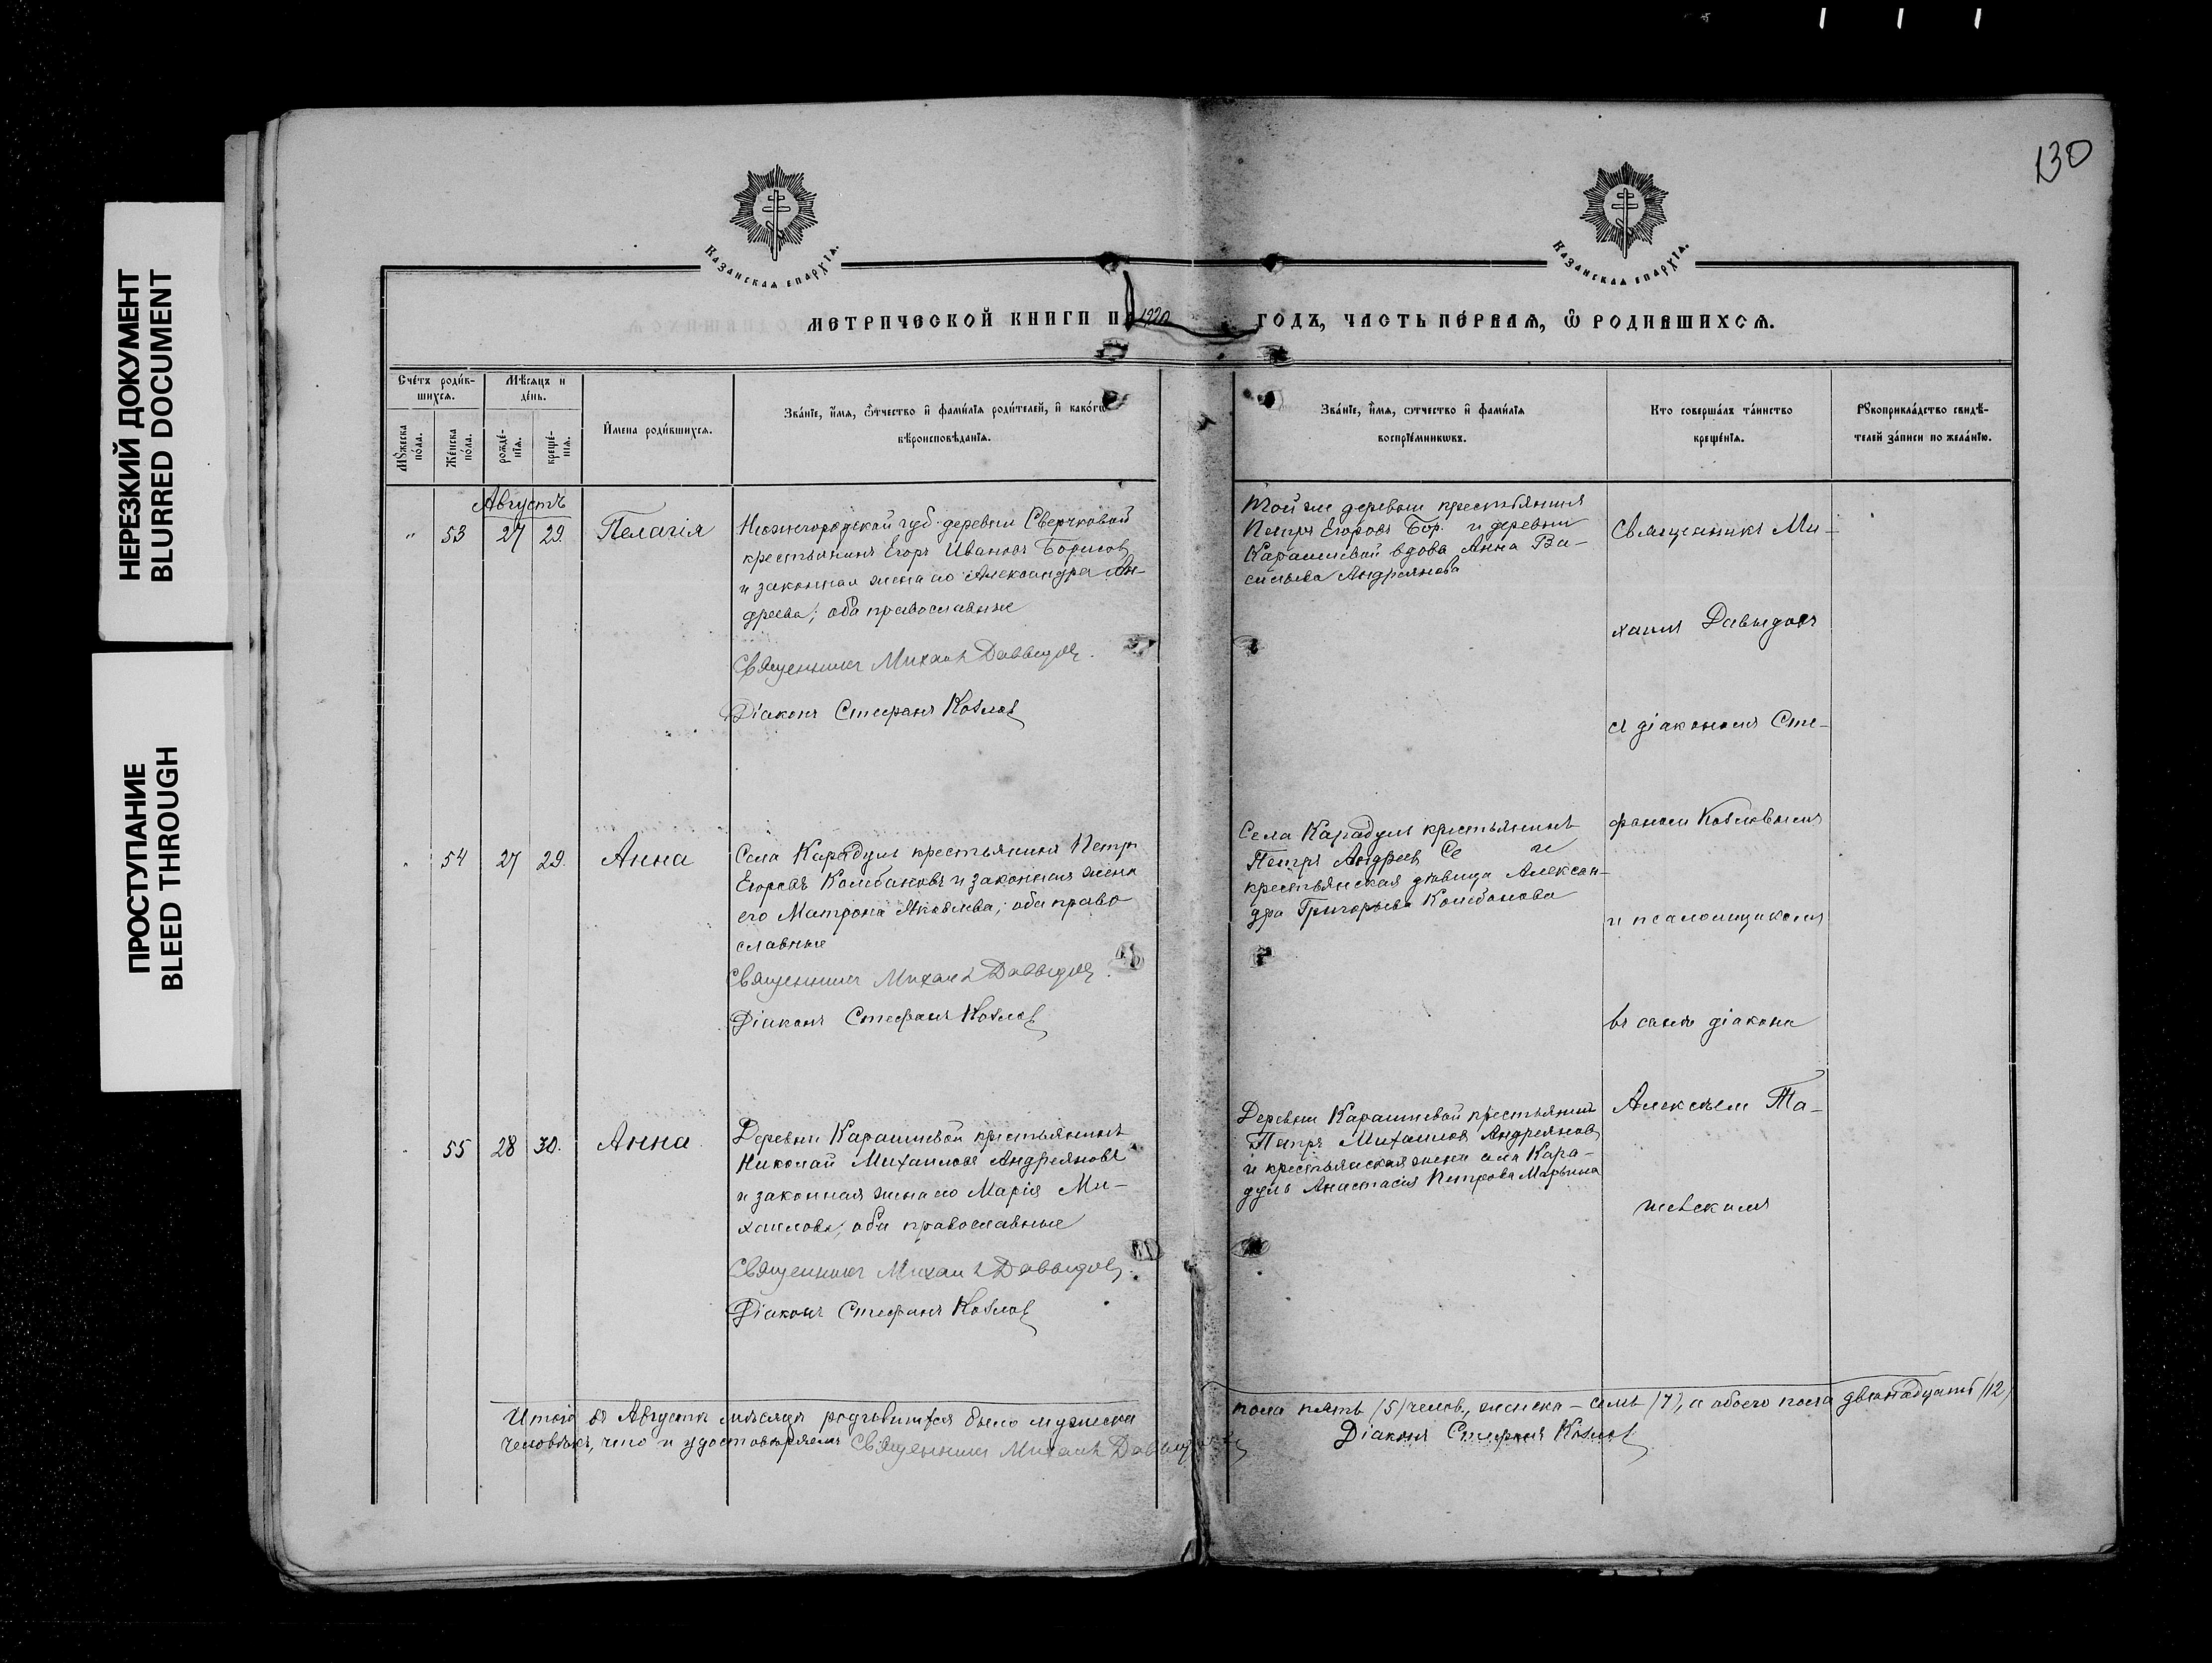 НЕРЕЗКИЙ ДОКУМЕНТ
BLURRED DOCUMENT
ПРОСТУПАНИЕ
BLEED THROUGH
130
Казанская епархїѧ.
Казанская епархїѧ.
МЕТРИЧЕСКОЙ КНИГИ НА 1920 ГОДЪ, ЧАСТЬ ПЕ́РВАЯ, Ѽ РОДИВШИХСѦ.
Сче́тъ роди́в-
шихся.
Мѣсяцъ и
де́нь.
Мꙋ́жеска
по́ла.
Же́нска
по́ла.
рожде́-
нїя.
креще́-
нїя.
И҆мена роди́вшихся.
Зва́нїе, и҆́мя, ѻ҆́тчество и҆ фами́лїя роди́телей, и҆ како́гѡ
вѣроисповѣ́данїя.
Зва́нїе, и҆́мя, ѻ҆́тчество и҆ фами́лїя
воспрїе́мникѡвъ.
Кто соверша́лъ та́инство
креще́нїя.
Рꙋкоприкла́дство свидѣ́-
телей за́писи по жела́нїю.
Августъ
" 53 27 29. Пелагія
Нижегородской губ. деревни Сверчковой
крестьянинъ Егоръ Ивановъ Борисов
и законная жена его Александра Ан-
дреева; оба православные
Священникъ Михаилъ Давыдов.
Діаконъ Стефанъ Козлов
Той же деревни крестьянин
Петръ Егоровъ Бор. и деревни
Карашевой вдова Анна Ва-
сильева Андреянова
Священникъ Ми-
хаилъ Давыдовъ
съ діакономъ Сте-
фаном Козловымъ
и псаломщикомъ
въ санѣ діакона
Алексѣем Та-
" 54 27 29. Анна
Села Карадулъ крестьянинъ Петръ
Егоровъ Колбановъ и законная жена
его Матрона Яковлева; оба право
славные
Священникъ Михаилъ Давыдов.
Діаконъ Стефанъ Козлов
Села Карадулъ крестьянинъ
Петръ Андреев Се и
крестьянская дѣвица Алексан-
дра Григорьева Колбанова
" 55 28 30. Анна
Деревни Карашевой крестьянинъ
Николай Михаиловъ Андреяновъ
и законная жена его Марія Ми-
хаилова, оба православные
Священникъ Михаилъ Давыдов.
Діаконъ Стефанъ Козлов
Деревни Карашевой крестьянин
Петръ Михаилов Андреянов
и крестьянская жена села Кара-
дулъ Анастасія Петрова Марьина
Итого въ Августѣ мѣсяцѣ родившихся было мужска пола пять /5/ челов., женска – семь /7/, а обоего пола двѣнадцать /12/
человѣкъ, что и удостовѣряемъ Священникъ Михаилъ Давыдов Діаконъ Стефанъ Козлов